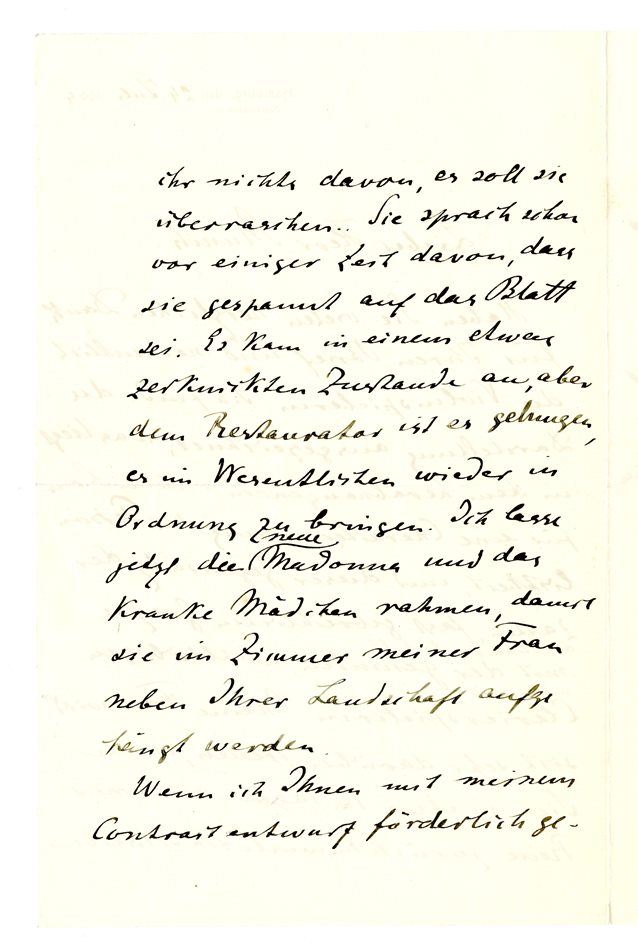 ihr nichts davon, es soll sie
überraschen.. Sie sprach schon
vor einiger Zeit davon, dass
sie gespannt auf das Blatt
sei. Es kam in einem etwas
zerknickten Zustande an, aber
dem Restaurator ist es gelungen,
es im Wesentlichen wieder in
Ordnung zu bringen. Ich lasse
jetzt die neue Madonna und das
Kranke Mädchen rahmen, damit
sie im Zimmer meiner Frau
neben Ihrer Landschaft aufge
hängt werden.
Wenn ich Ihnen mit meinem
Contraktentwurf förderlich ge-